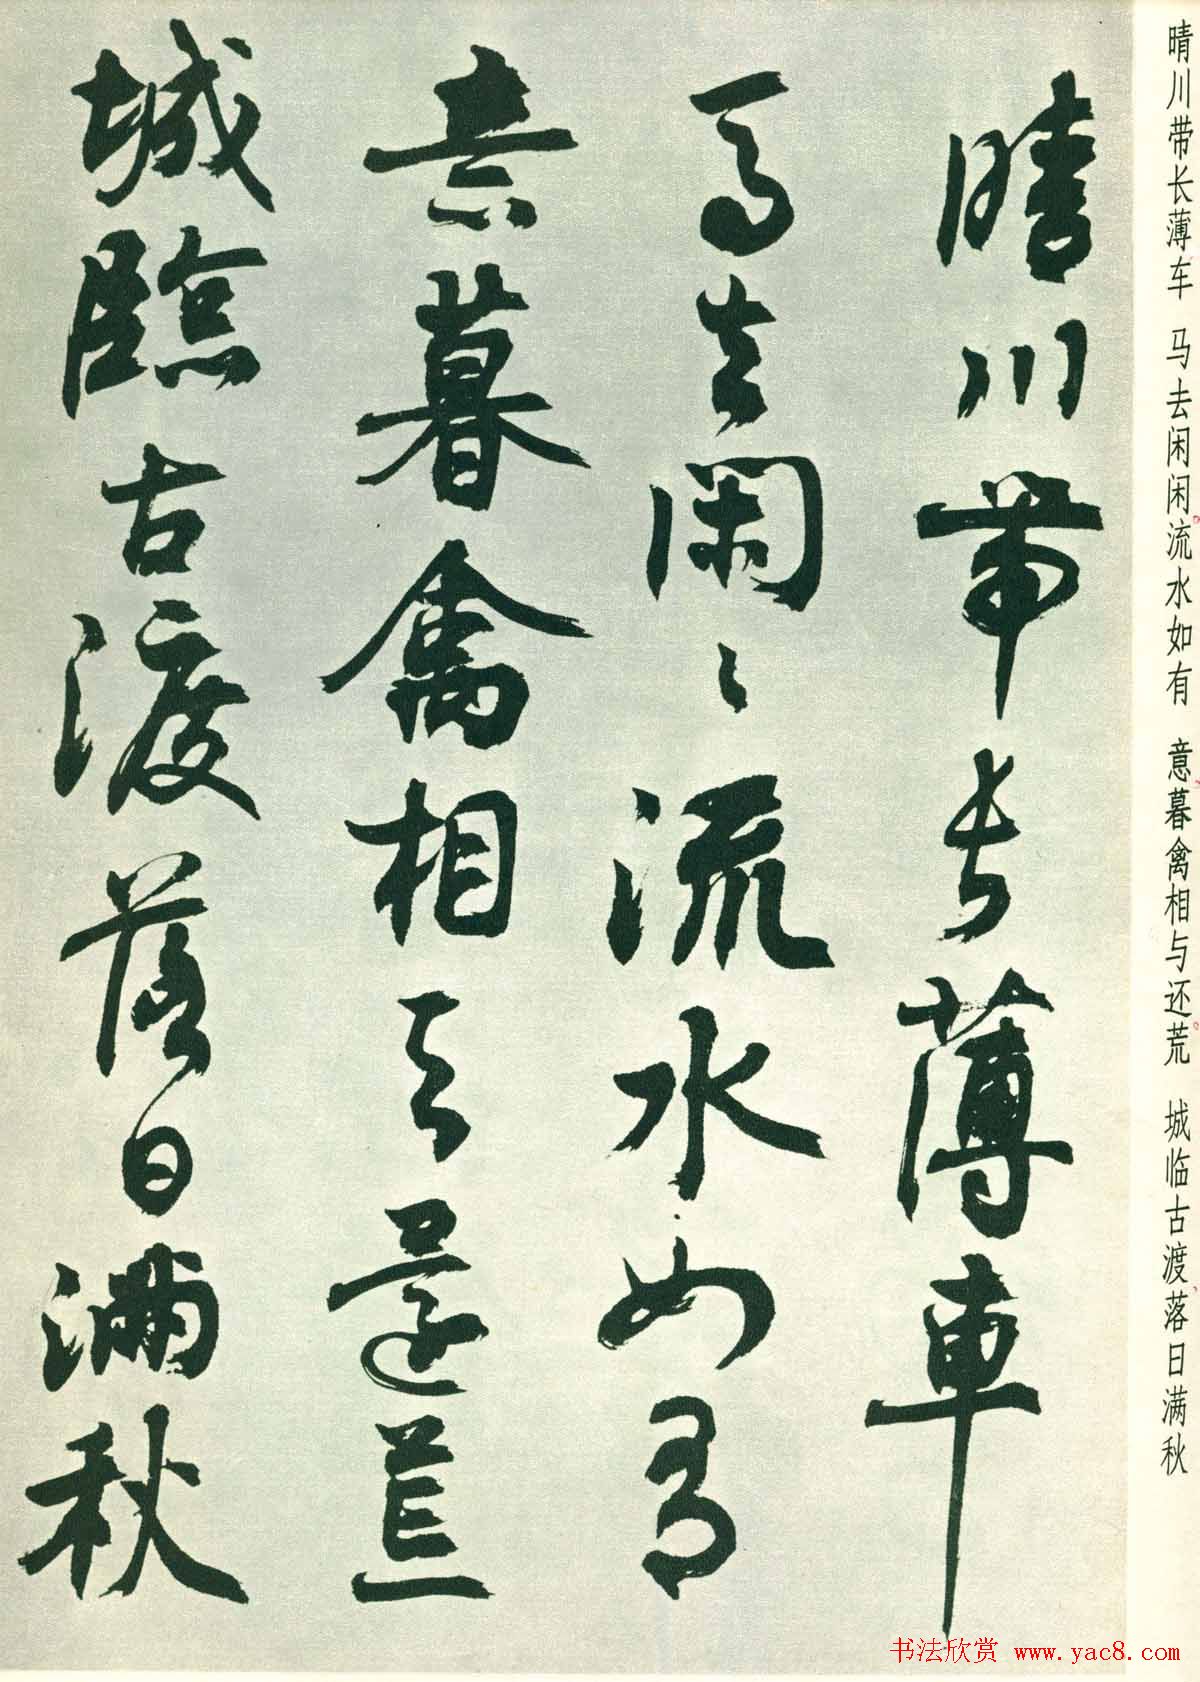 晴川带长薄车 马去闲闲流水如有 意暮禽相与还荒 城临古渡落日满秋
晴川帶長薄車
馬去閑〻流水如有
意暮禽相与還荒
城臨古渡落日滿秋
书法欣赏 www.yac8.com